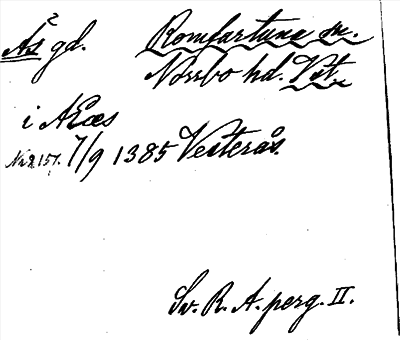 Ås² gd. Romfartuna sn.
Norrbo hd. Vst.
i Aas
Nr 2157. 7/9 1385 Vesterås.
Sv. R. A. perg. II.